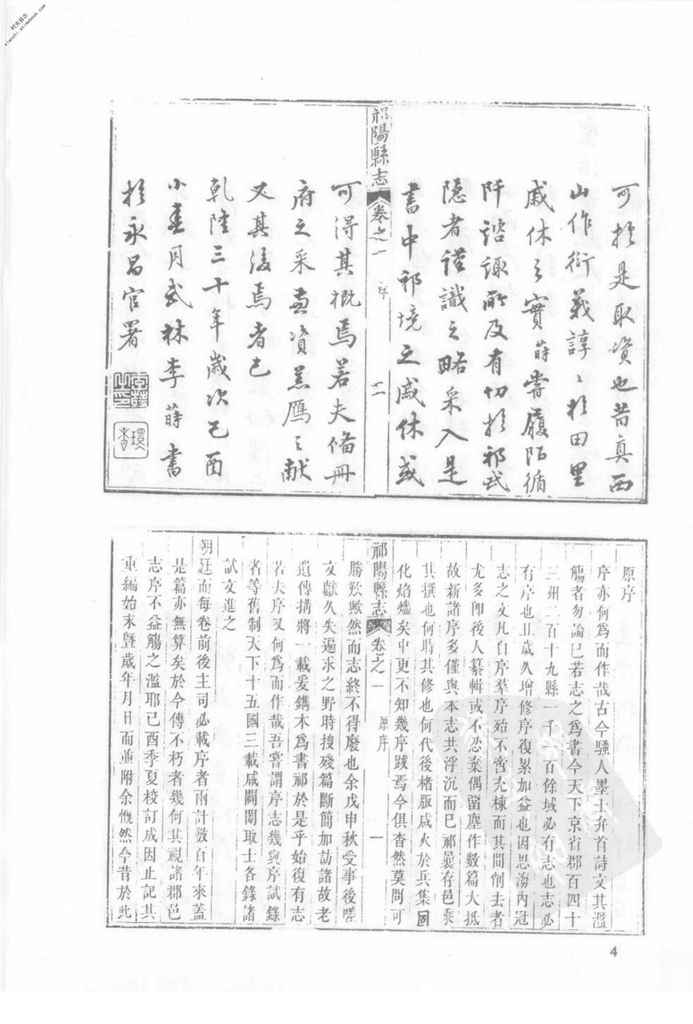 可於是取資也昔真西
山作衍義諄〻於田里
戚休之實蒔嘗履陌循
阡諮諏所及有切於祁或
隱者謹識之略采入是
書中祁境之戚休或
祁陽縣志 卷之一 序 十一
可得其概焉若夫備冊
府之采薈資羔鴈之獻
又其後焉者已
乾隆三十年歲次己酉
小春月武林李蒔書
於永昌官署
原序
序亦何為而作哉古今騷人墨士弁首詩文其濫
觴者勿論已若志之為書今天下京省郡百四十
三州二百十九縣一千一百餘域必有志也志必
有序也且歲久增修序復累加益也因思海內冠
志之文凡自序羣序殆不啻充棟而其間削去者
尤多卽後人纂輯或不忍棄偶留塵作數篇大抵
故新諸序多僅與本志共浮沉而已祁曩存邑乘
其撰也何時其修也何代後楮版咸火於兵集
化焰爐矣中更不知幾序踐焉今俱杳然莫問可
祁陽縣志 卷之一 原序 一
勝歎歟然而志終不得廢也余戊申秋受事後嘆
文獻久失遍求之野時搜殘篇斷簡加訪諸故老
遺傳搆將一載爰鐫木為書祁於是乎始復有志
若夫序又何為而作哉吾嘗謂序志幾與序試錄
者等舊制天下十五國三載咸闢闈取士各錄諸
試文進之
朝廷而每卷前後主司必載序者兩計數百年來蓋
是篇亦無算矣於今傳不朽者幾何其視諸郡邑
志序不益觴之濫耶己酉季夏校訂成因止記其
重編始末暨歲年月日而並附余慨然今昔於此
4